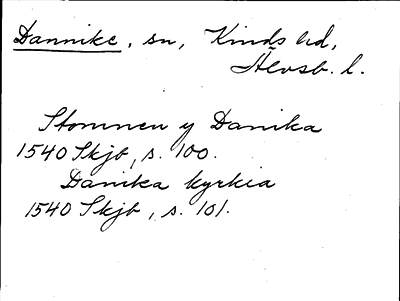 Dannike, sn, Kinds hd,
Älvsb. l.
Stommen y Danika
1540 Skjb, s. 100.
Danika kyrkia
1540 Skjb, s. 101.